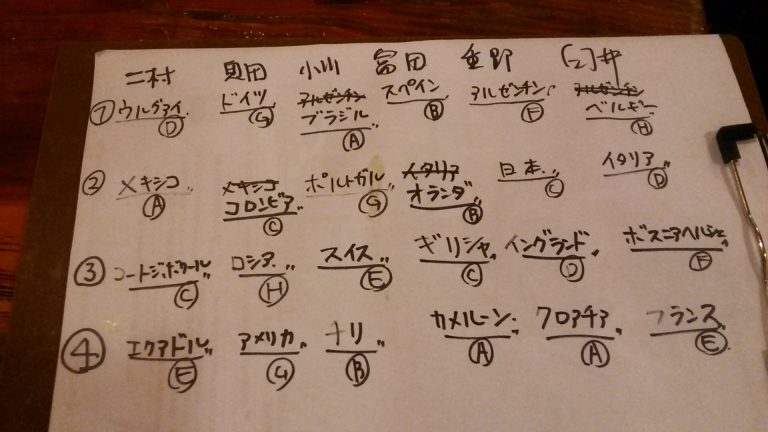 二村 奥田 小川 富田 重野 臼井
① ウルグアイ ドイツ アルゼンチン スペイン アルゼンチン アルゼンチン
ブラジル ベルギー
D G A B F H
② メキシコ メキシコ ポルトガル イタリア 日本 イタリア
コロンビア オランダ
A C G B C D
③ コートジボワール ロシア スイス ギリシャ イングランド ボスニアヘルツェ
C H E C D F
④ エクアドル アメリカ チリ カメルーン クロアチア フランス
E G B A A E